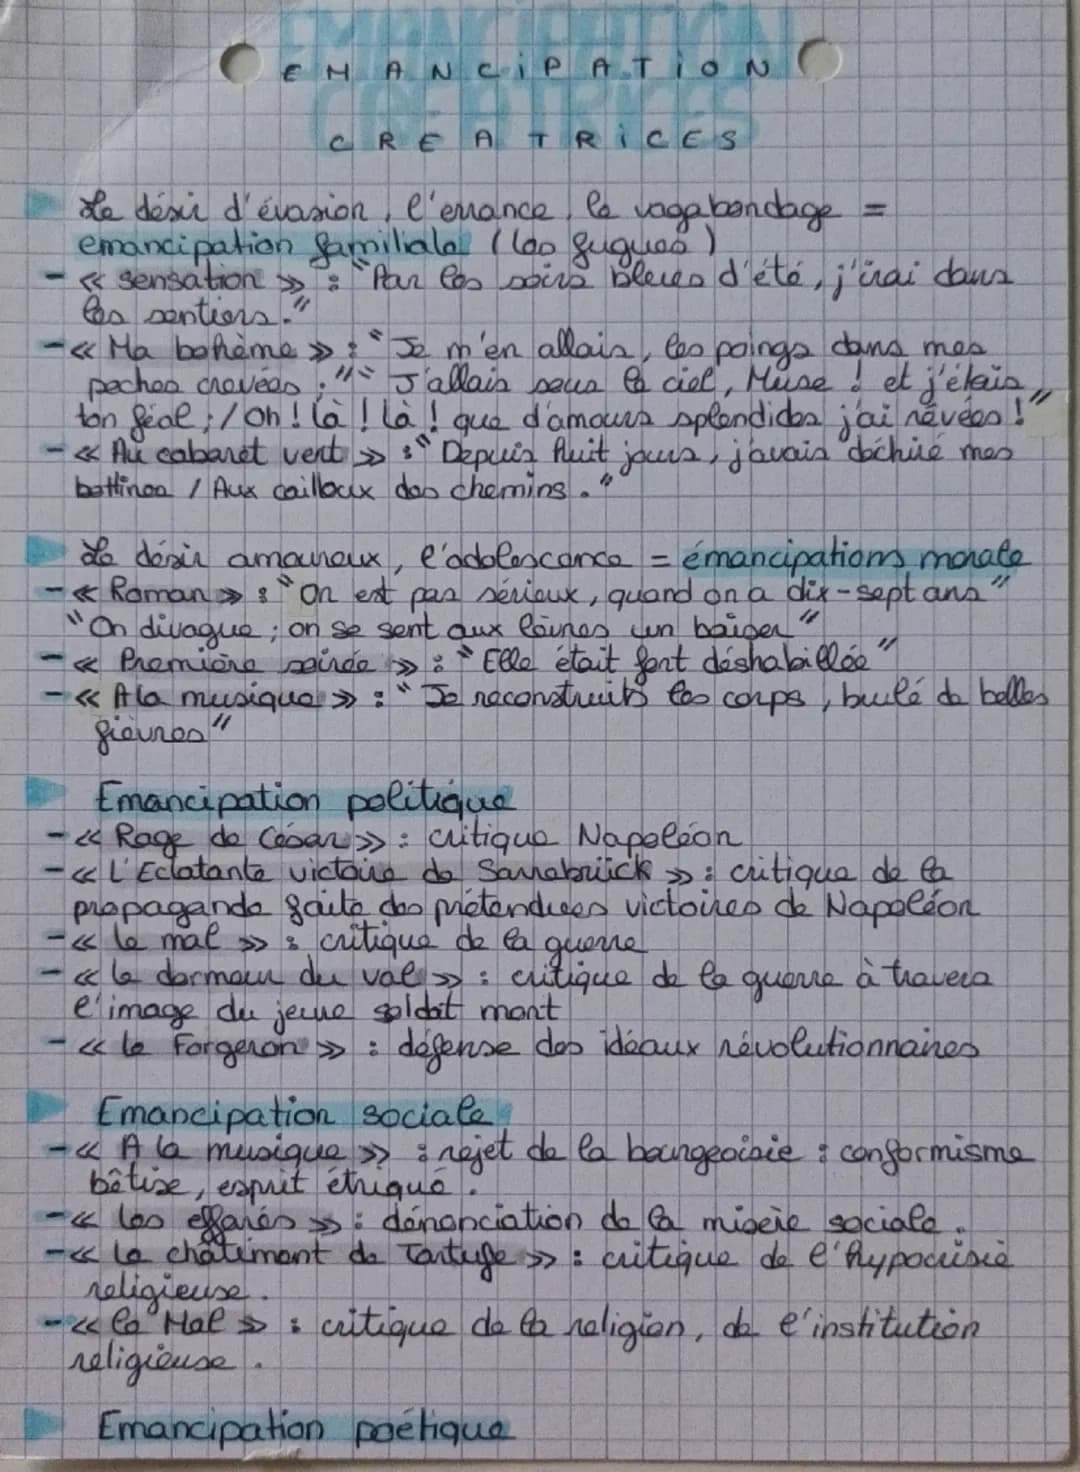 EMANCIPATION
CREATRICES
Le désir d'évasion, l'errance, le vagabondage =
emancipation familiale (les fugues)
- « Sensation » : "Par les soirs bleus d'été, j'irai dans
les sentiers."
- « Ma bohème » : "Je m'en allais, les poings dans mes
poches crevées ;" "J'allais sous le ciel, Muse ! et j'étais
ton féal ; / Oh ! là ! là ! que d'amours splendides j'ai rêvées !"
- « Au cabaret vert » : "Depuis huit jours, j'avais déchiré mes
bottines / Aux cailloux des chemins."
Le désir amoureux, l'adolescence = émancipations morale
- « Roman » : "On est pas sérieux, quand on a dix-sept ans"
"On divague ; on se sent aux lèvres un baiser"
- « Première soirée » : "Elle était fort déshabillée"
- « A la musique » : "Je reconstruits les corps, brulé de belles
fièvres"
Emancipation politique
- « Rage de César » : critique Napoléon
- « L'Eclatante victoire de Sarrebrück » : critique de la
propagande faite des prétendues victoires de Napoléon
- « le mal » : critique de la guerre
- « le dormeur du val » : critique de la guerre à travers
l'image du jeune soldat mort
- « le Forgeron » : défense des idéaux révolutionnaires
Emancipation sociale
- « A la musique » : rejet de la bourgeoisie : conformisme
bêtise, esprit étriqué.
- « les effarés » : dénonciation de la misère sociale.
- « le châtiment de Tartufe » : critique de l'hypocrisie
religieuse.
- « le Mal » : critique de la religion, de l'institution
religieuse.
Emancipation poétique